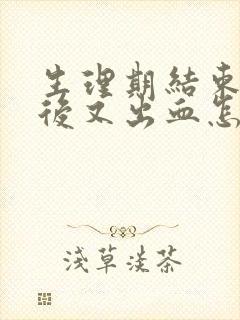 生理期結束
後又出血怎
淺草淡茶